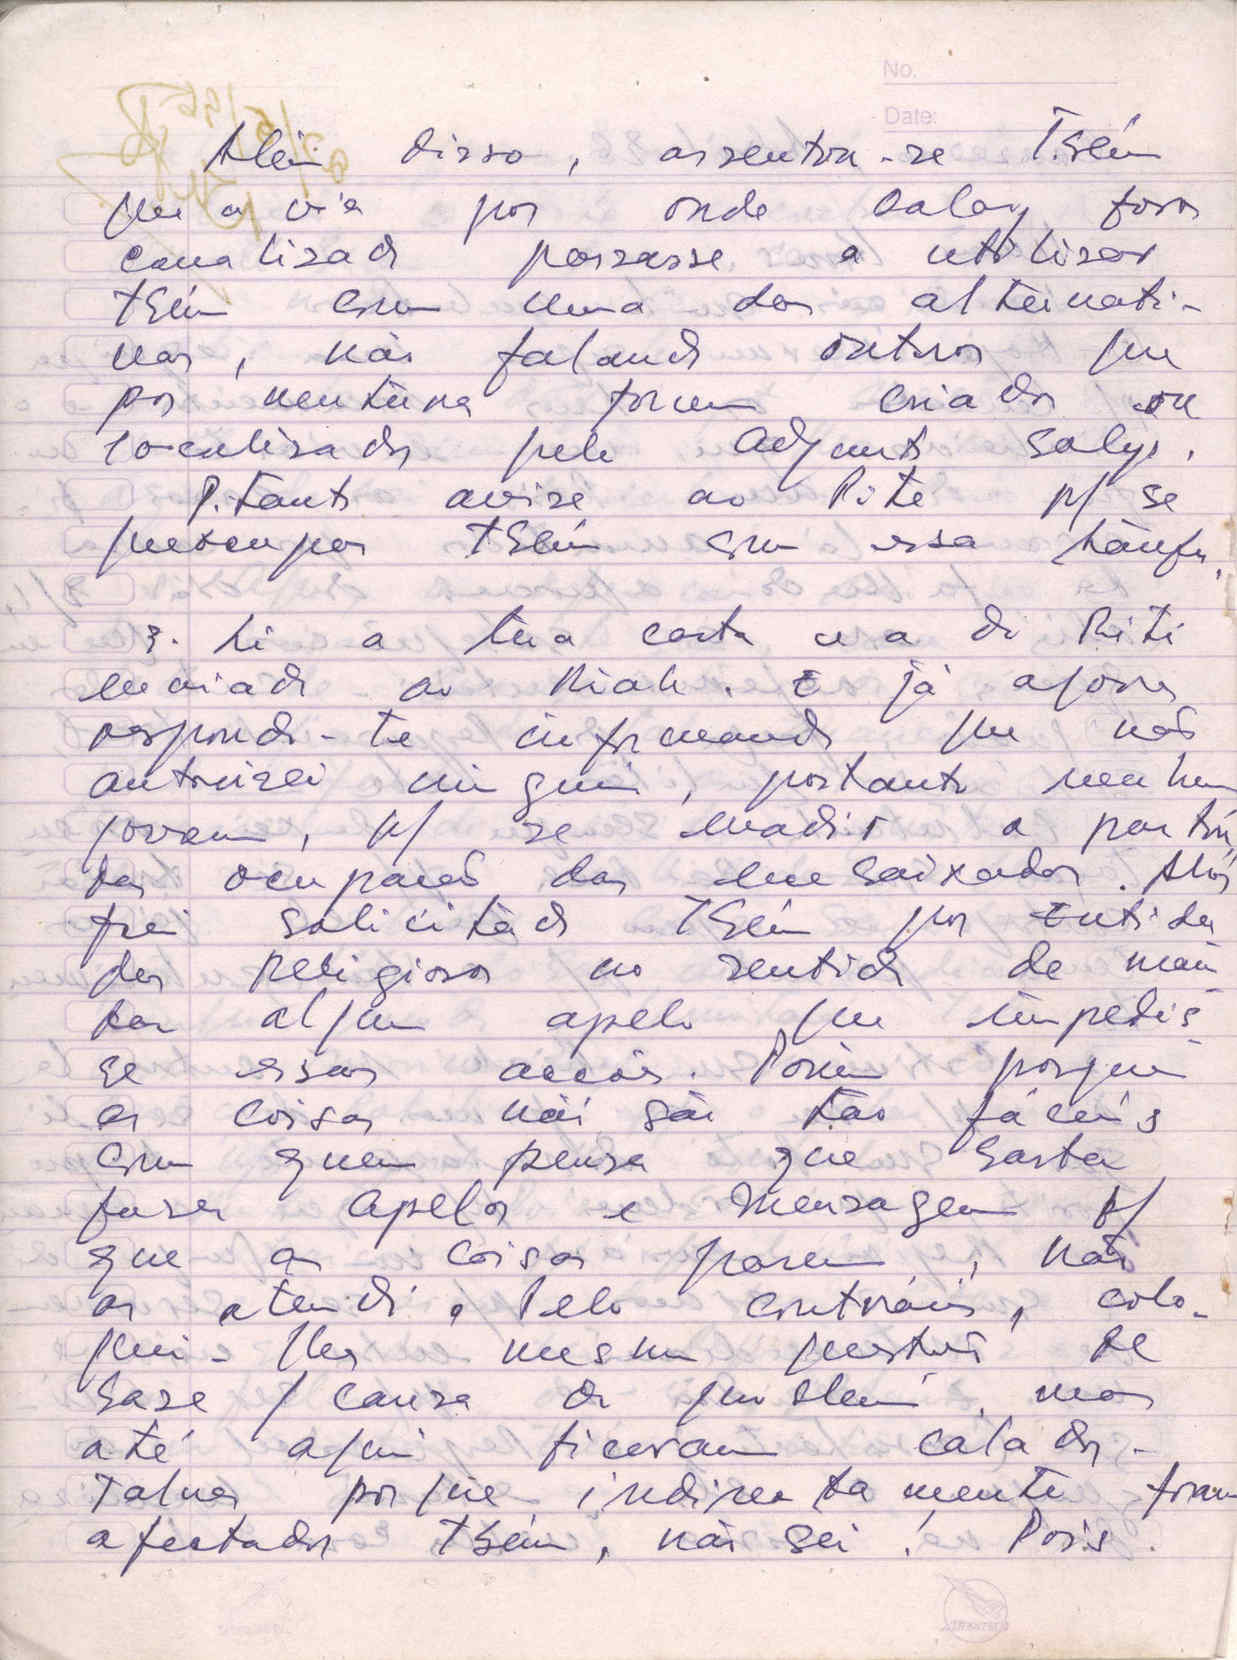 No.
Date:
Além disso, assentou-se Tbém
que a via por onde Dalay fora
canalizado passasse a utilizar
tbém como uma das alternati-
vas, não falando outros que
por ventura forem criados ou
localizados pelo Adjunto Saky.
P.tanto avise ao Rite p/ se
preocupar tbém com essa tarefa.
3. Li a tua carta e a do Riti
enviada ao Riak. E já agora
respondo-te informando que não
autorizei ninguém, portanto nenhum
jovem, p/ se evadir a partir
das ocupações das embaixadas. Aliás
fui solicitado Tbém por Entida
des religiosas no sentido de man
dar algum apelo que impedis
se essas acções. Porém porque
as coisas não são tão fáceis
como quem pensa que basta
fazer apelos e mensagem p/
que as coisas parem, não
os atendi. Pelo contrário, colo-
quei-lhes mesmo questão de
base / causa do problema, mas
até aqui ficaram calados.
Talvez porque indirectamente foram
afectados tbém, não sei! Pois.